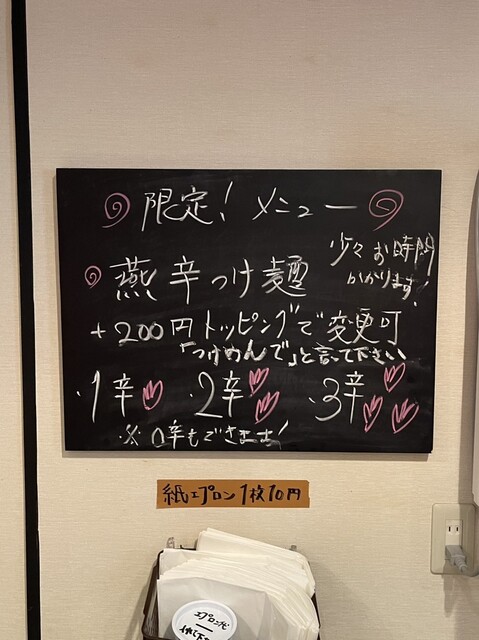 限定! メニュー
少々お時間
かかります!
燕辛つけ麺
+200円トッピングで変更可
「つけめんで」と言って下さい
・1辛 ・2辛 ・3辛
※0辛もできます!
紙エプロン1枚10円
エプロン代